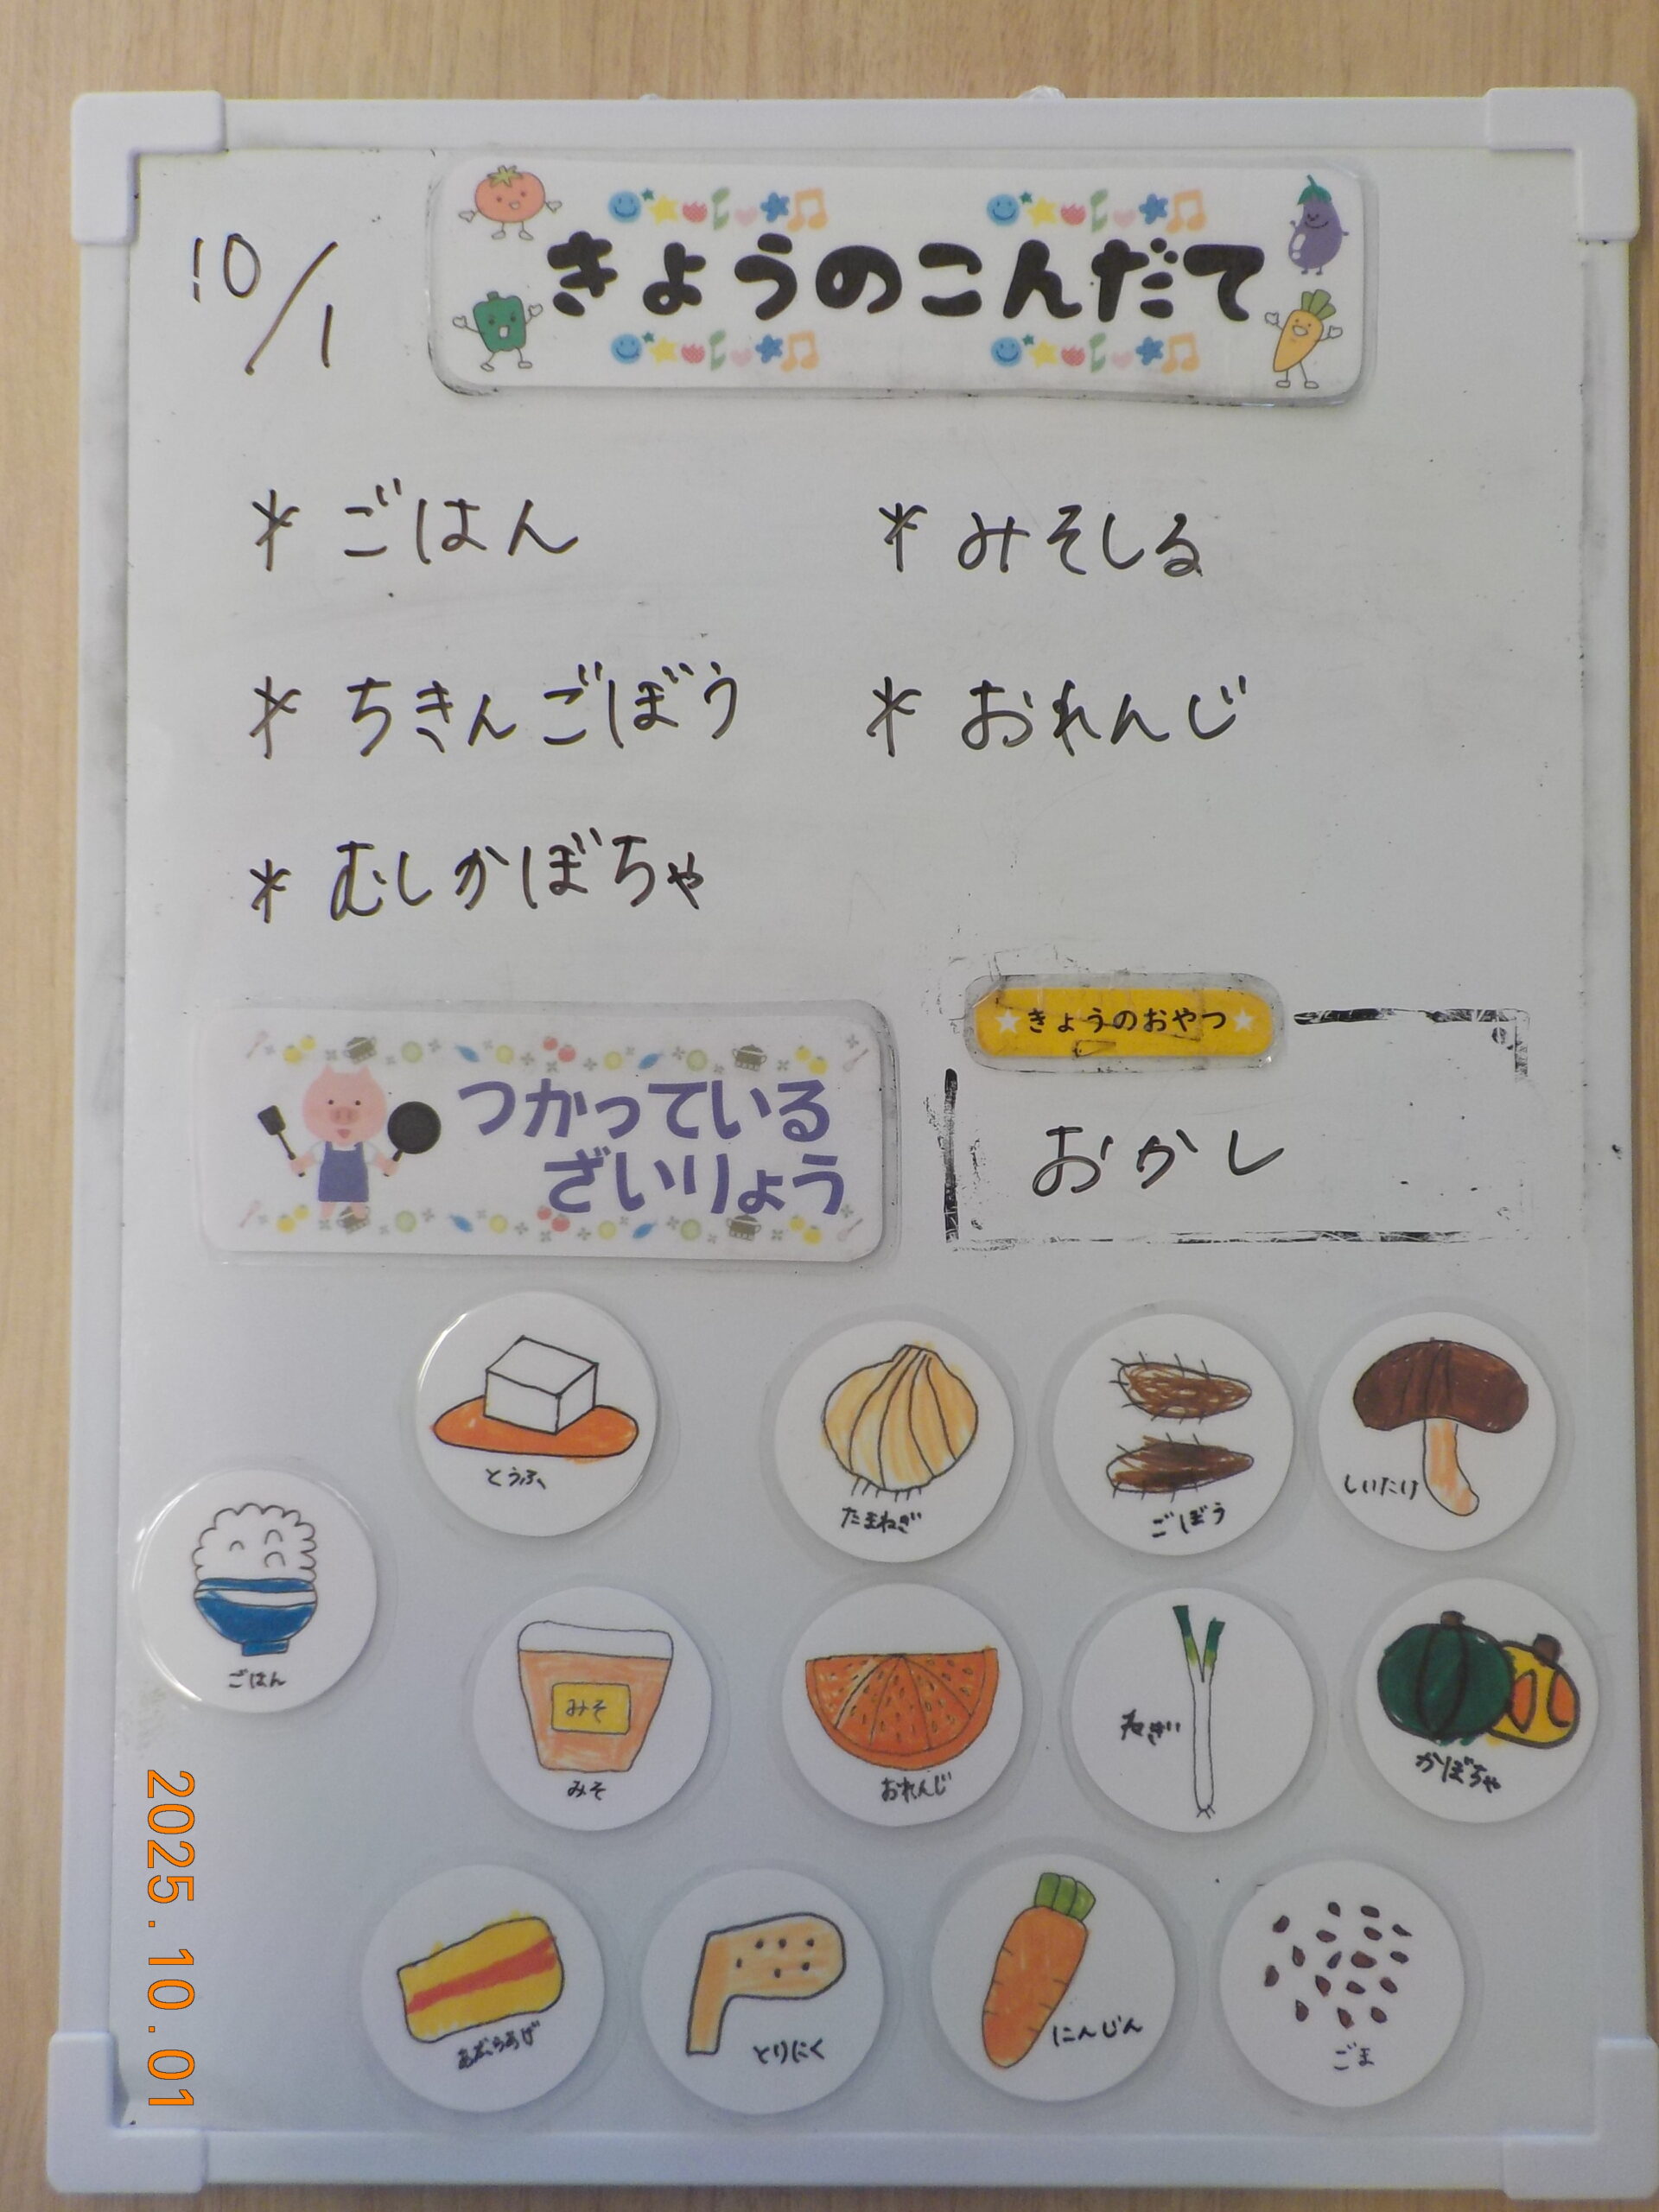 10/1
きょうのこんだて
* ごはん
* みそしる
* ちきんごぼう
* おれんじ
* むしかぼちゃ
きょうのおやつ
おかし
つかっている
ざいりょう
とうふ
たまねぎ
ごぼう
しいたけ
ごはん
みそ
みそ
おれんじ
ねぎ
かぼちゃ
あぶらあげ
とりにく
にんじん
ごま
2025.10.01